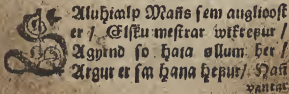 Aluhialp Mañs sem auglioost
er / Elsku mestrar wiktepur /
Agyrnd so hata øllum ber /
Argur er sa hana hepur / Hañ
vantar